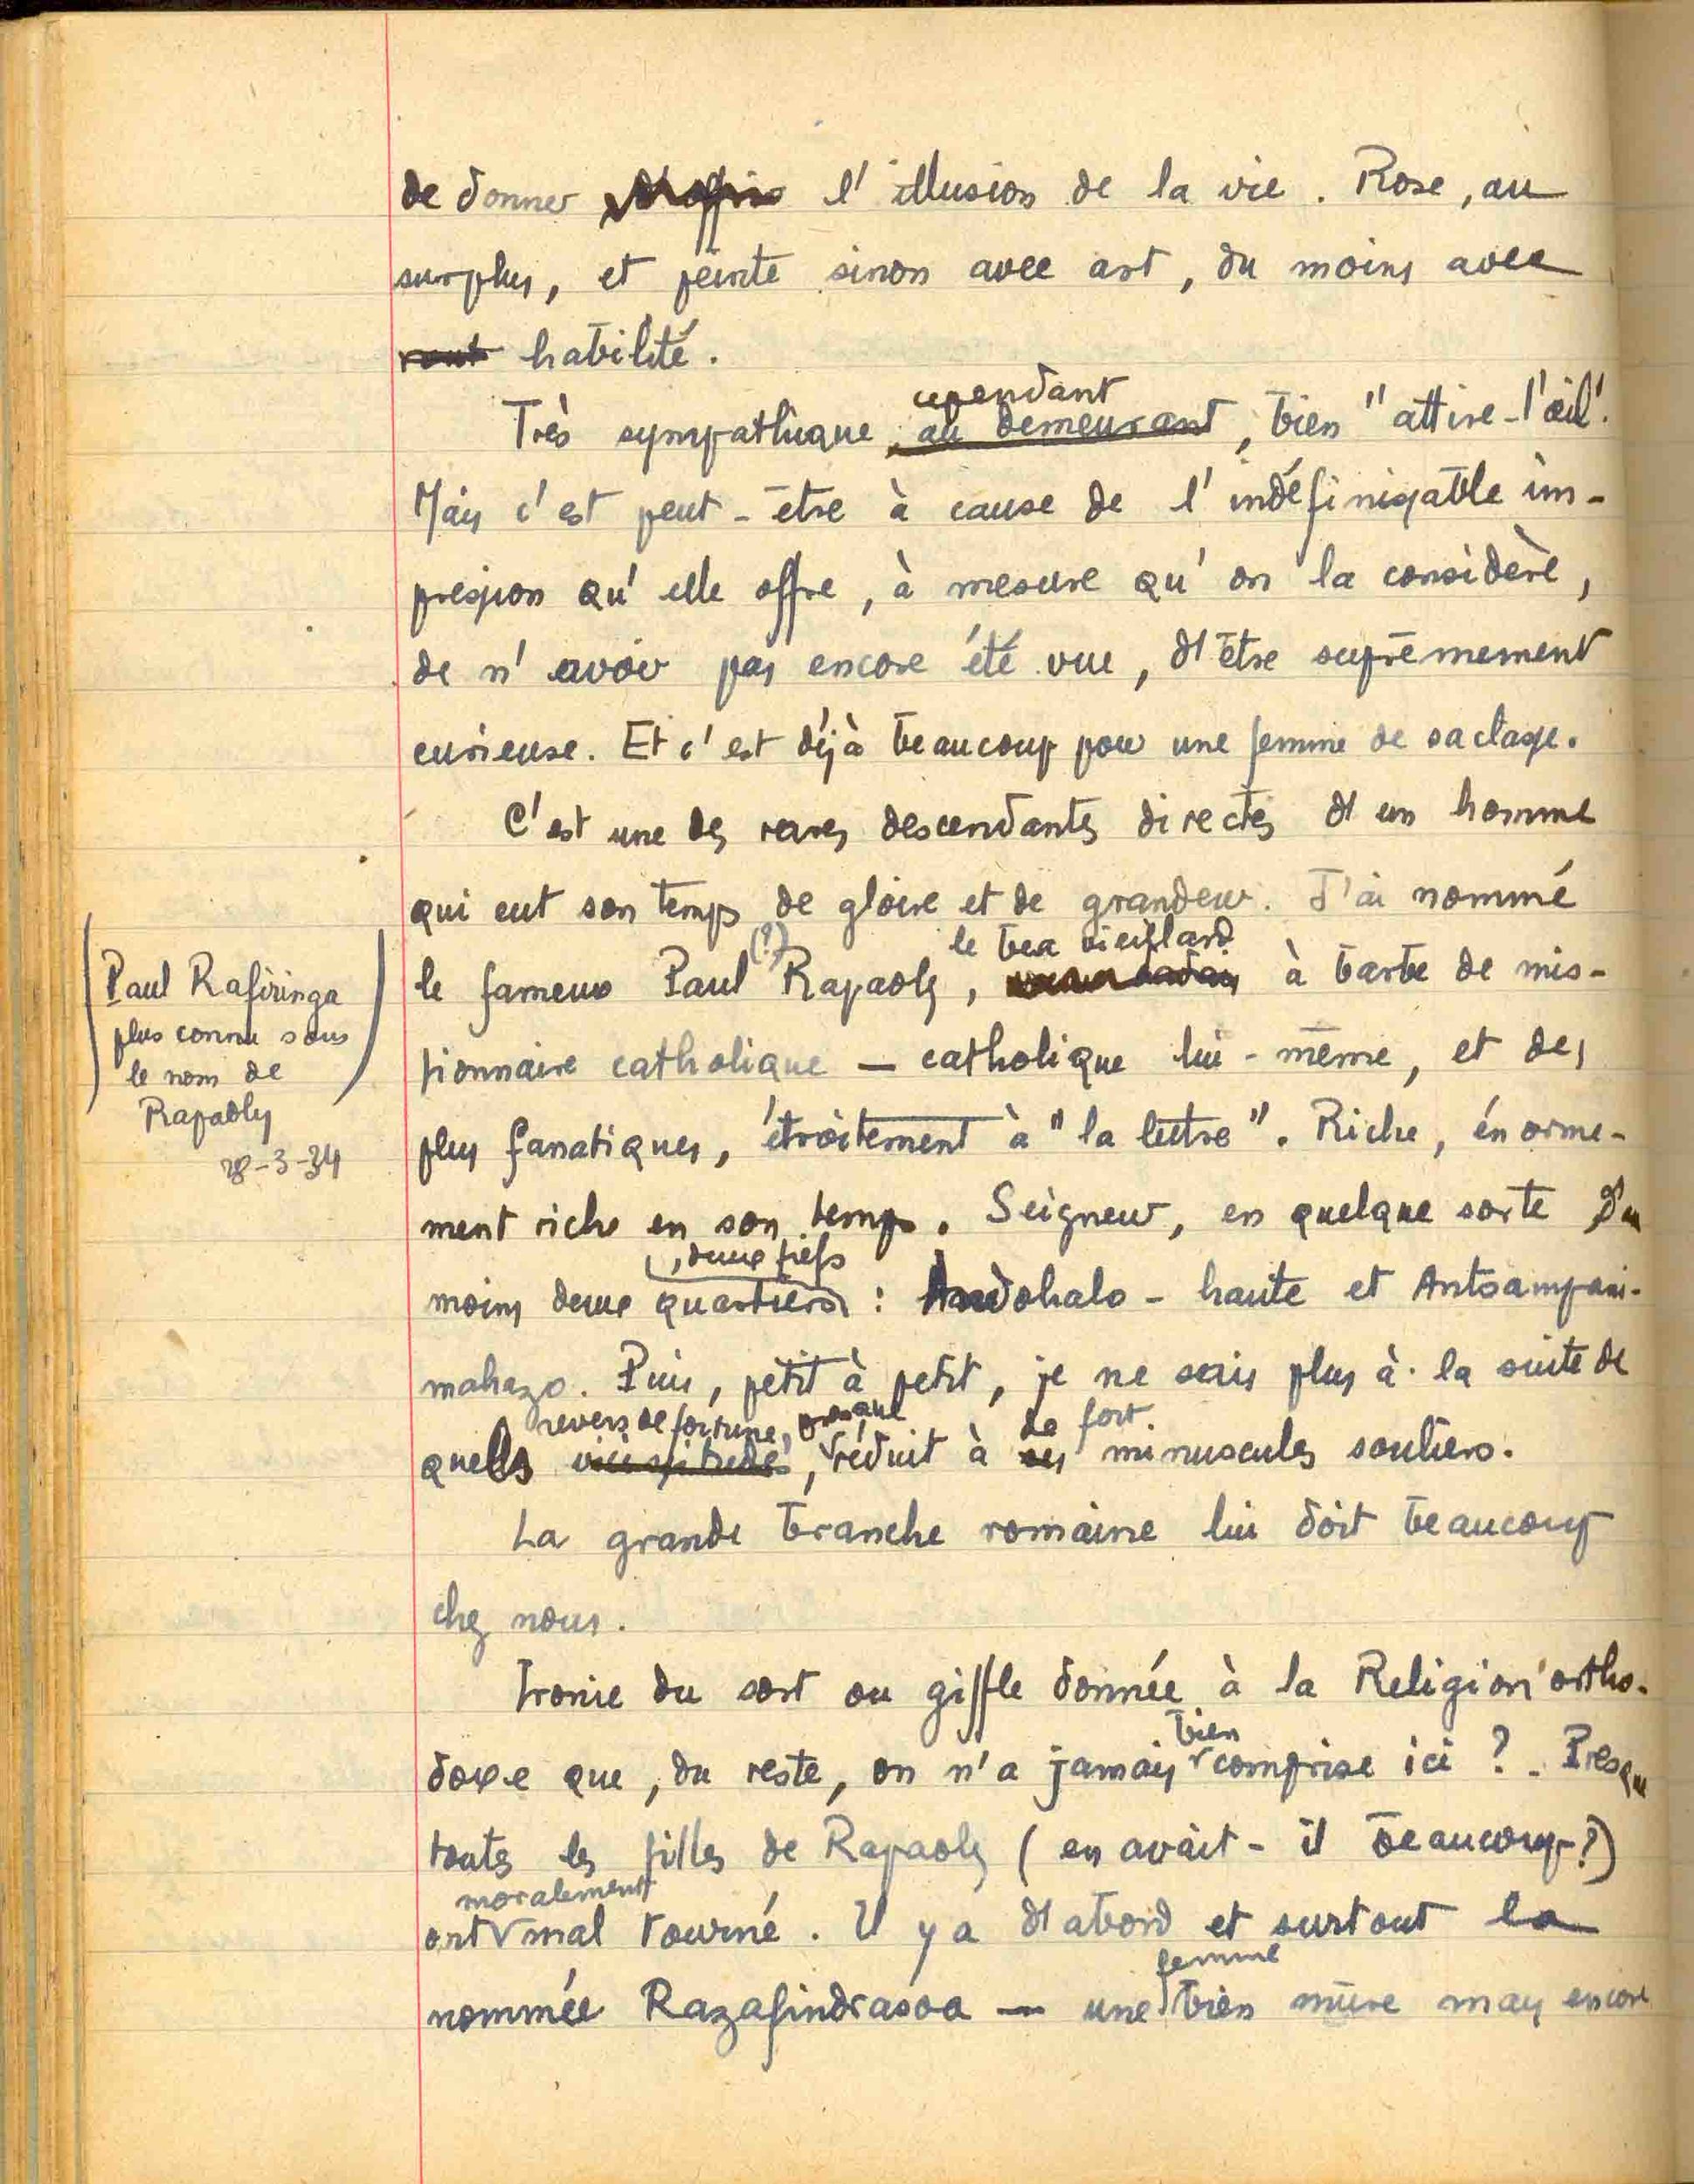 de donner l'illusion de la vie. Rose, au
surplus, et peinte sinon avec art, du moins avec
habilité.
cependant
Très sympathique, au demeurant, bien "attire-l'œil".
Mais c'est peut-être à cause de l'indéfinissable im-
pression qu'elle offre, à mesure qu'on la considère,
de n'avoir pas encore été vue, d'être suprêmement
curieuse. Et c'est déjà beaucoup pour une femme de sa classe.
C'est une des rares descendantes directes d'un homme
qui eut son temps de gloire et de grandeur. J'ai nommé
(?) le beau vieillard
le fameux Paul Rapaoly, à barbe de mis-
sionnaire catholique — catholique lui-même, et des
plus fanatiques, étroitement à "la lettre". Riche, énormé-
ment riche en son temps. Seigneur, en quelque sorte d'au
, deux fiefs
moins deux quartiers : Andohalo-haute et Antsampani-
mahazo. Puis, petit à petit, je ne sais plus à la suite de
revers de fortune, presque de fort
quels vicissitudes, réduit à ses minuscules sentiers.
La grande branche romaine lui doit beaucoup
chez nous.
Ironie du sort ou giffle donnée à la Religion ortho-
bien
doxe que, du reste, on n'a jamais comprise ici ? - Presque
toutes les filles de Rapaoly (en avait-il beaucoup ?)
moralement
ont mal tourné. Il y a d'abord et surtout la
femme
nommée Razafindrasoa — une bien mûre mais encore
Paul Rafiringa
plus connu sous
le nom de
Rapaoly
28-3-34